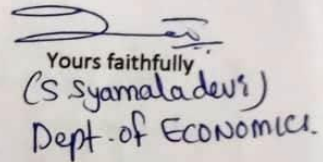 Yours faithfully
(S Syamaladevi)
Dept. of ECONOMICS.